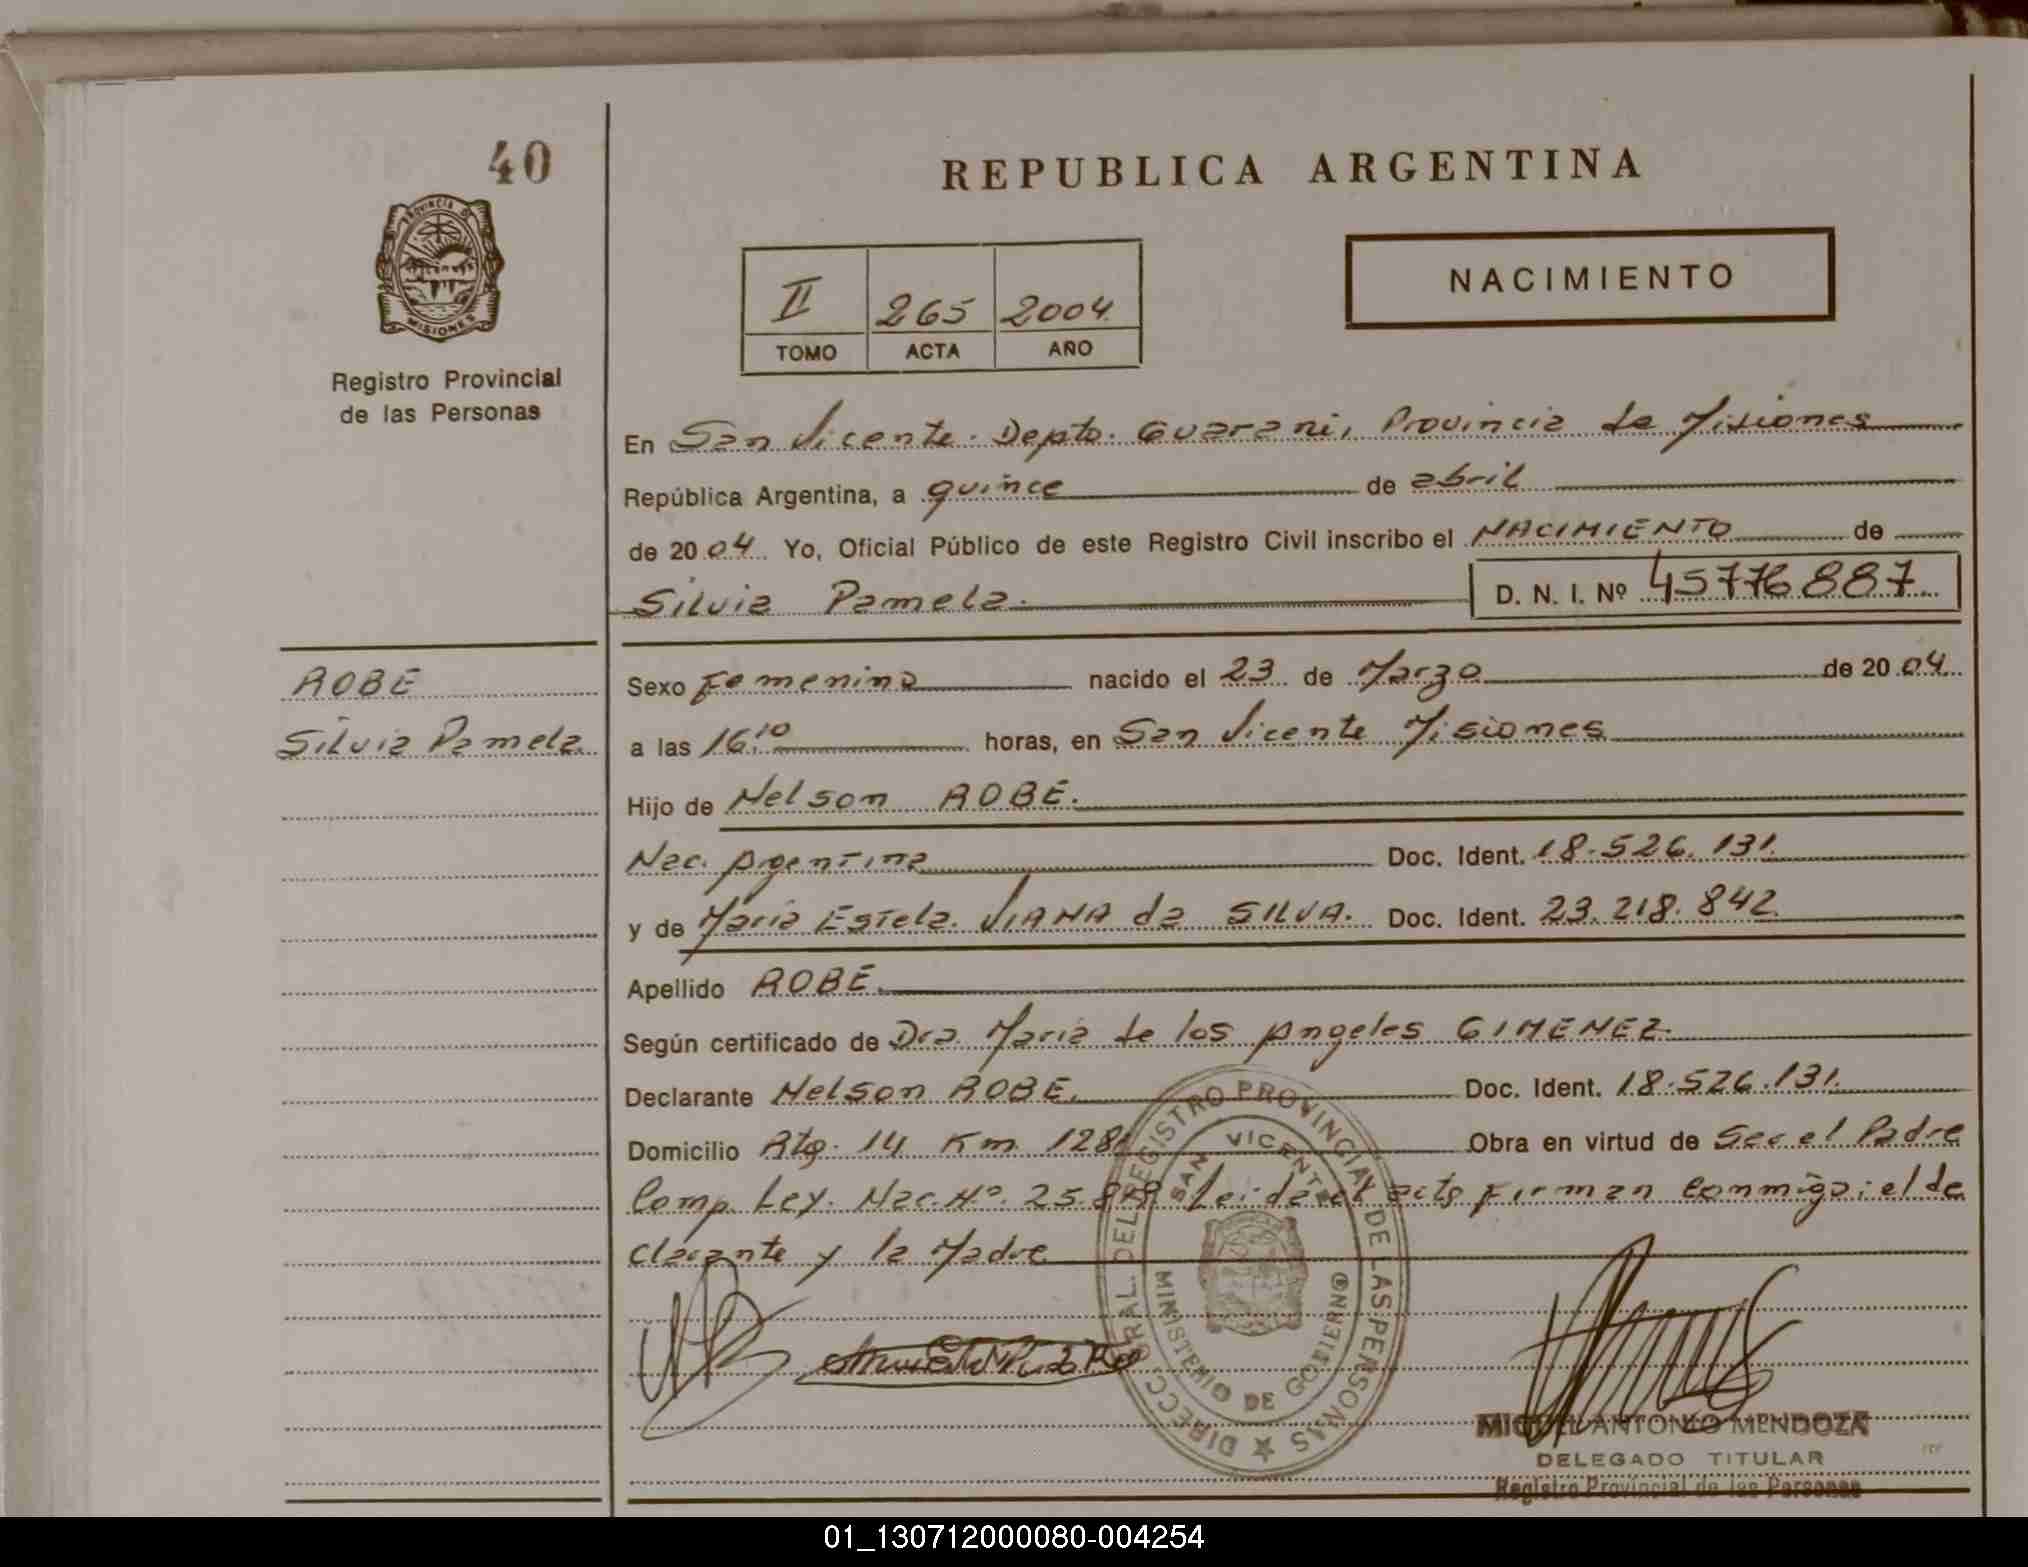 40
REPUBLICA ARGENTINA
PROVINCIA DE
MISIONES
NACIMIENTO
II 265 2004
TOMO ACTA AÑO
Registro Provincial
de las Personas
En San Vicente. Depto. Guarani, Provincia de Misiones
República Argentina, a quince de abril
de 2004 Yo, Oficial Público de este Registro Civil inscribo el NACIMIENTO de
Silvia Pamela. D. N. I. Nº 45776887
ROBE
Silvia Pamela
Sexo Femenino nacido el 23 de Marzo de 2004
a las 16.10 horas, en San Vicente Misiones
Hijo de Nelson ROBE.
Nac. Argentina Doc. Ident. 18.526.131.
y de Maria Estela. VIANA da SILVA. Doc. Ident. 23.218.842
Apellido ROBE.
Según certificado de Dra. Maria de los Angeles GIMENEZ
Declarante Nelson ROBE. Doc. Ident. 18.526.131.
Domicilio Rta. 14 Km 128 Obra en virtud de Ser el Padre
Comp. Ley. Nac. Nº. 25.819 Leida el acta firman conmigo: el de
clarante y la Madre
DIRECC. GRAL. DEL REGISTRO PROVINCIAL DE LAS PERSONAS
SAN VICENTE
MINISTERIO DE GOBIERNO
MIGUEL ANTONIO MENDOZA
DELEGADO TITULAR
Registro Provincial de las Personas
01_130712000080-004254